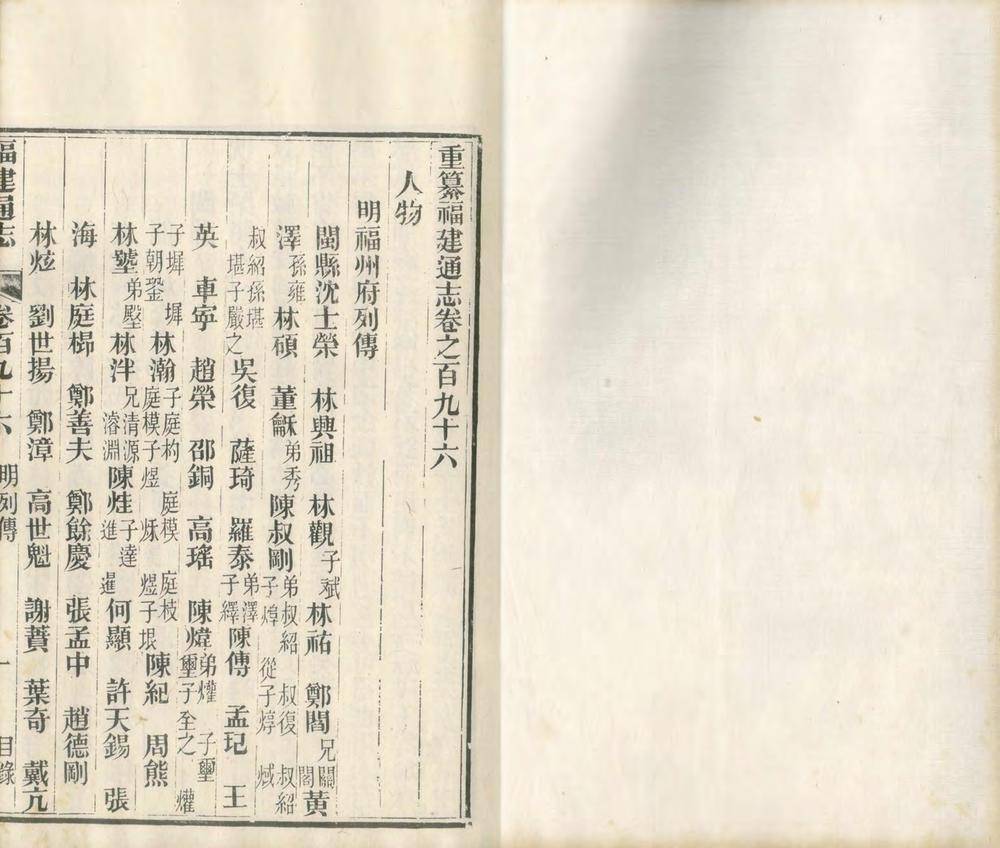 重纂福建通志卷之一百九十六
人物
明福州府列傳
閩縣沈士榮 林興祖 林觀 子斌 林祐 鄭閻 兄關 閣 黃
澤 孫雍 林碩 董龢 弟秀 陳叔剛 弟叔紹 叔復 叔紹子煒 從子焞 焞
叔紹孫墀 墀子嚴之 吳復 薩琦 羅泰 弟澤 子繹 陳傳 孟玘 王
英 車寧 趙榮 邵銅 高瑤 陳煒 弟爟 子璽 璽子至之 爟
子墀 墀子朝鋆 林瀚 子庭㭿 庭模 庭枝 庭模子煜 烁 煜子垠 陳紀 周熊
林壂 弟壂 林泮 兄清源 濬淵 陳烓 子達 進 暹 何顯 許天錫 張
海 林庭㭿 鄭善夫 鄭餘慶 張孟中 趙德剛
林炫 劉世揚 鄭漳 高世魁 謝蕡 葉奇 戴亢
福建通志 卷百九十六 明列傳 一 目錄